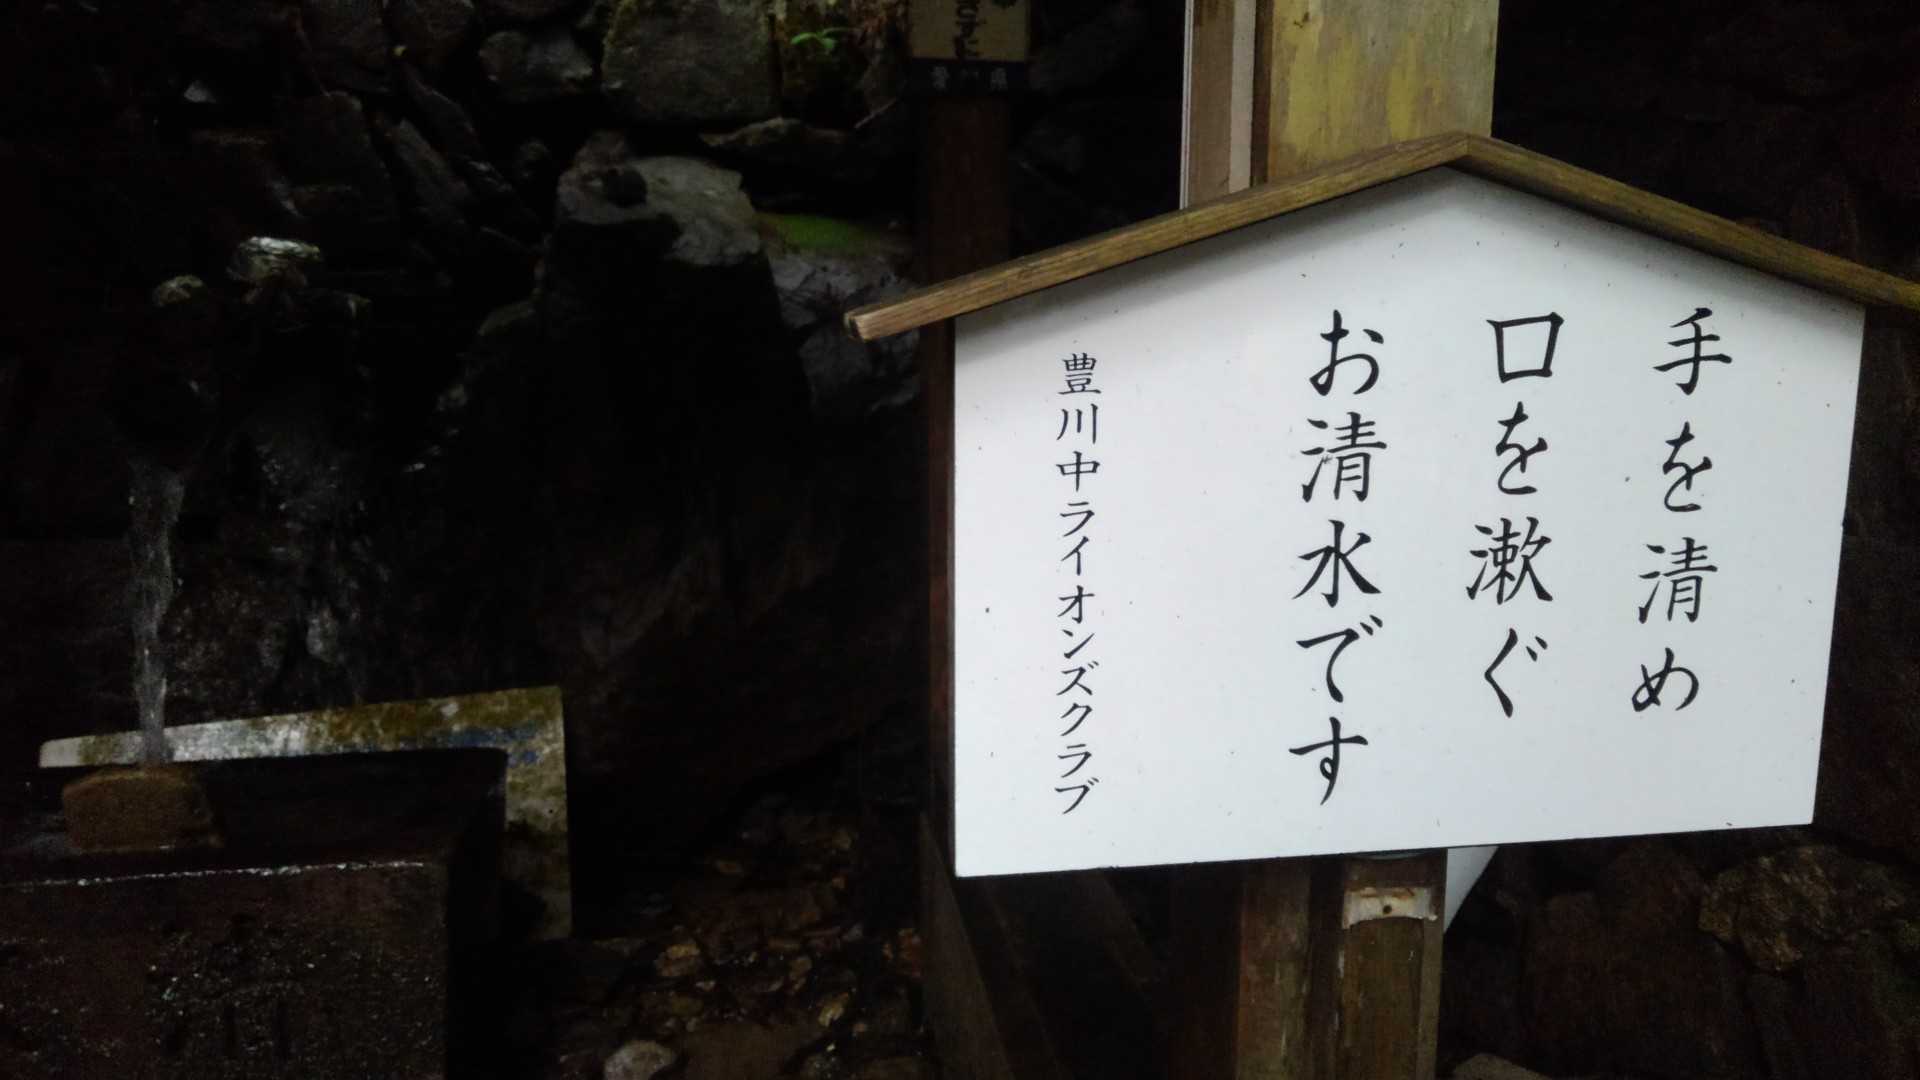 手を清め
口を漱ぐ
お清水です
豊川中ライオンズクラブ